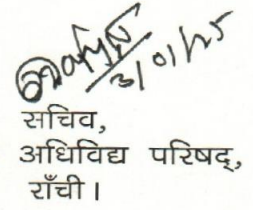 3/01/25
सचिव,
अधिविद्य परिषद्,
राँची।